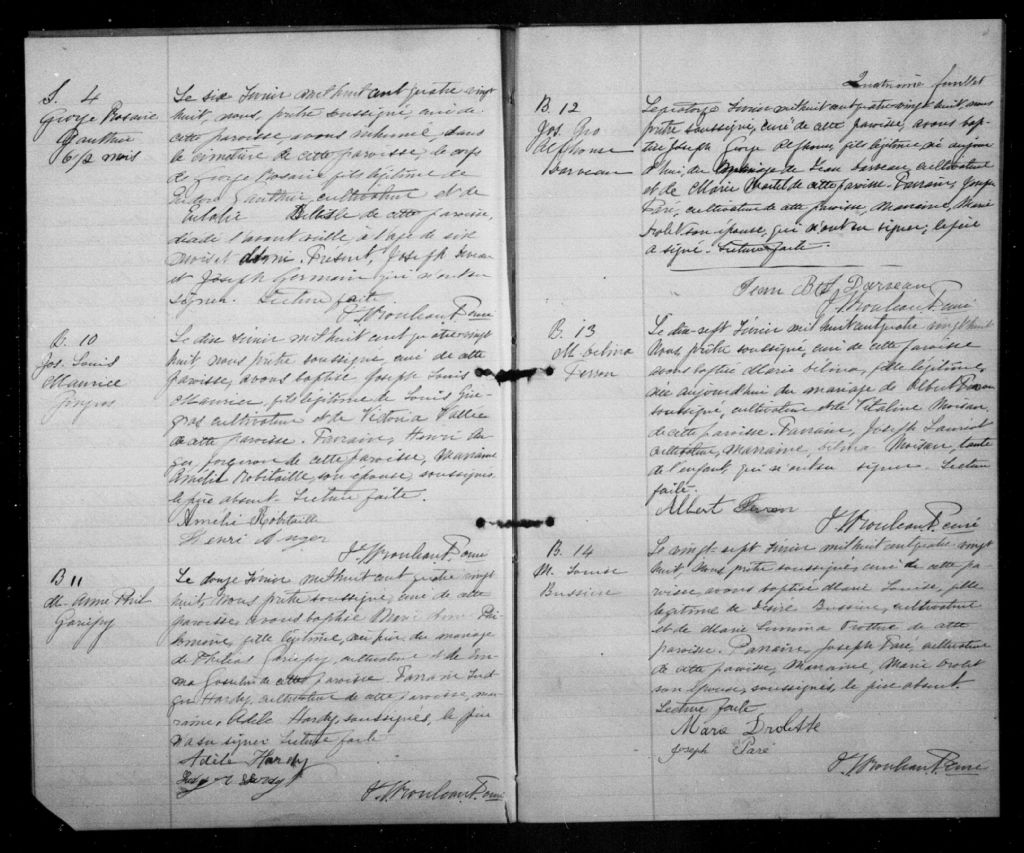 S. 4
George Rosario
Gauthier
6 1/2 mois
Le six Février mil huit cent quatre vingt
huit, nous, prêtre soussigné, curé de
cette paroisse, avons inhumé dans
le cimetière de cette paroisse, le corps
de George Rosario fils légitime de
Gauthier, cultivateur et de
Eulalie de cette paroisse,
décédé l'avant veille, à l'age de six
mois et demi. Présent, Joseph
et Joseph Germain qui n'ont su
signer. Lecture faite.
J. Wrouleau Ptre curé
B. 10
Jos. Louis
Maurice
Gingras
Le dix Février mil huit cent quatre vingt
huit, nous prêtre soussigné, curé de cette
paroisse, avons baptisé Joseph Louis
Maurice, fils légitime de Louis Gin-
gras cultivateur et de Victoria Vallée
de cette paroisse. Parrain, Henri Au-
ger, forgeron de cette paroisse, Marraine
Amélie Robitaille, son épouse, soussignés,
le père absent. Lecture faite.
Amélie Robitaille
Henri Auger
J. Wrouleau Ptre curé
B 11
M. Anne Phil.
Gariépy
Le douze Février mil huit cent quatre vingt
huit, Nous prêtre soussigné, curé de cette
paroisse, avons baptisé Marie Anne Phi-
lomène, fille légitime, du mariage
de Philéas Gariépy, cultivateur et de Em-
ma Gosselin de cette paroisse. Parrain
Hardy, cultivateur de cette paroisse, mar-
raine, Adèle Hardy, soussignés, le père
n'a su signer Lecture faite
Adèle Hardy
J. Wrouleau Ptre curé
Quatrième feuillet
B 12
Jos. Geo
Alphonse
Darveau
Le quatorze Février mil huit cent quatre vingt huit, nous
prêtre soussigné, curé de cette paroisse, avons bap-
tisé Joseph George Alphonse, fils légitime né aujour-
d'hui, du mariage de Jean Darveau, cultivateur
et de Marie de cette paroisse. Parrain, Joseph
Paré, cultivateur de cette paroisse, Marraine, Marie
Drolet son épouse, qui n'ont su signer; le père
a signé. Lecture faite.
Jean Bte Darveau
J. Wrouleau Ptre curé
B. 13
M. Délina
Perron
Le dix-sept Février mil huit cent quatre vingt huit
Nous, prêtre soussigné, curé de cette paroisse
avons baptisé Marie Délina, fille légitime,
née aujourd'hui du mariage de Albert Perron
soussigné, cultivateur et de Vitaline Moisan,
de cette paroisse. Parrain, Joseph
cultivateur, Marraine, Délina Moisan, tante
de l'enfant, qui n'ont su signer. Lecture
faite.
Albert Perron
J. Wrouleau Ptre curé
B. 14
M. Louise
Bussière
Le vingt-sept Février mil huit cent quatre vingt
huit, Nous prêtre soussigné, curé de cette pa-
roisse, avons baptisé Marie Louise, fille
légitime de Désiré Bussière, cultivateur
et de Marie Trottier de cette
paroisse. Parrain, Joseph Paré, cultivateur
de cette paroisse, Marraine, Marie Drolet
son épouse, soussignés, le père absent.
Lecture faite
Marie Drolette
Joseph Paré
J. Wrouleau Ptre curé